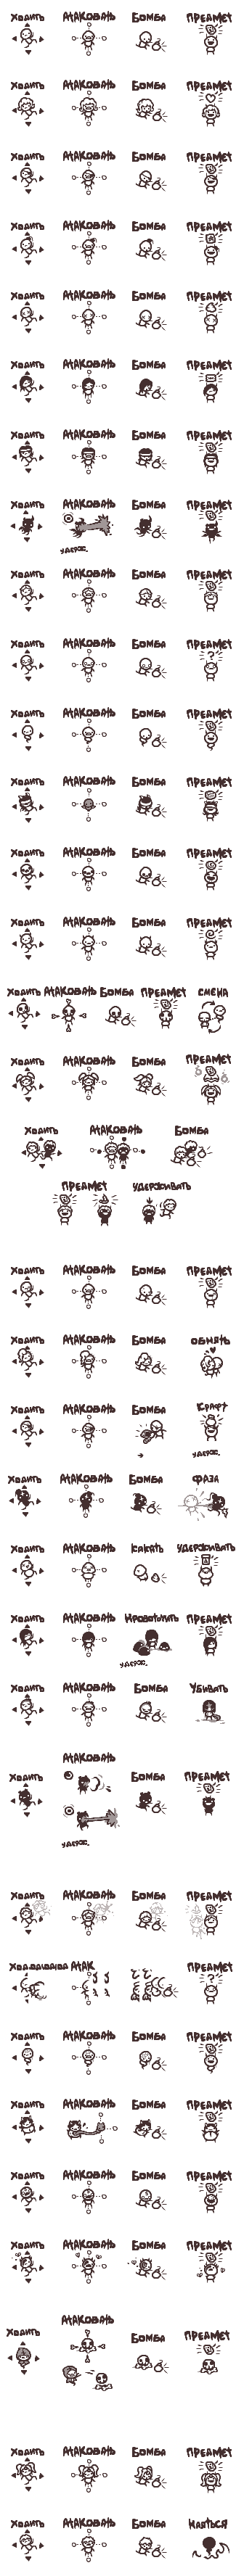 Ходить Атаковать Бомба Предмет
Ходить Атаковать Бомба Предмет
Ходить Атаковать Бомба Предмет
Ходить Атаковать Бомба Предмет
Ходить Атаковать Бомба Предмет
Ходить Атаковать Бомба Предмет
Ходить Атаковать Бомба Предмет
Ходить Атаковать Бомба Предмет
удерж.
Ходить Атаковать Бомба Предмет
Ходить Атаковать Бомба Предмет
?
Ходить Атаковать Бомба Предмет
Ходить Атаковать Бомба Предмет
Ходить Атаковать Бомба Предмет
Ходить Атаковать Бомба Предмет
Ходить Атаковать Бомба Предмет Смена
Ходить Атаковать Бомба Предмет
Ходить Атаковать Бомба
Предмет Удерживать
Ходить Атаковать Бомба Предмет
Ходить Атаковать Бомба Обнять
Ходить Атаковать Бомба Крафт
удерж.
Ходить Атаковать Бомба Фаза
Ходить Атаковать Какать Удерживать
Ходить Атаковать Кровоточить Предмет
удерж.
Ходить Атаковать Бомба Убивать
Атаковать
Ходить Бомба Предмет
удерж.
Ходить Атаковать Бомба Предмет
Ходдддддддд Атак Предмет
?
Ходить Атаковать Бомба Предмет
Ходить Атаковать Бомба Предмет
Ходить Атаковать Бомба Предмет
Ходить Атаковать Бомба Предмет
Атаковать
Ходить Бомба Предмет
Ходить Атаковать Бомба Предмет
Ходить Атаковать Бомба Каяться